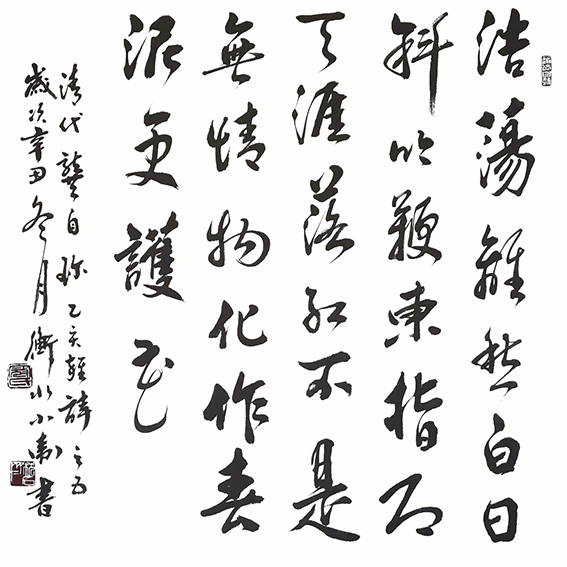 浩蕩離愁白日
斜吟鞭東指即
天涯落紅不是
無情物化作春
泥更護花
清代龔自珍乙亥雜詩之五
歲次辛丑冬月衡水小書